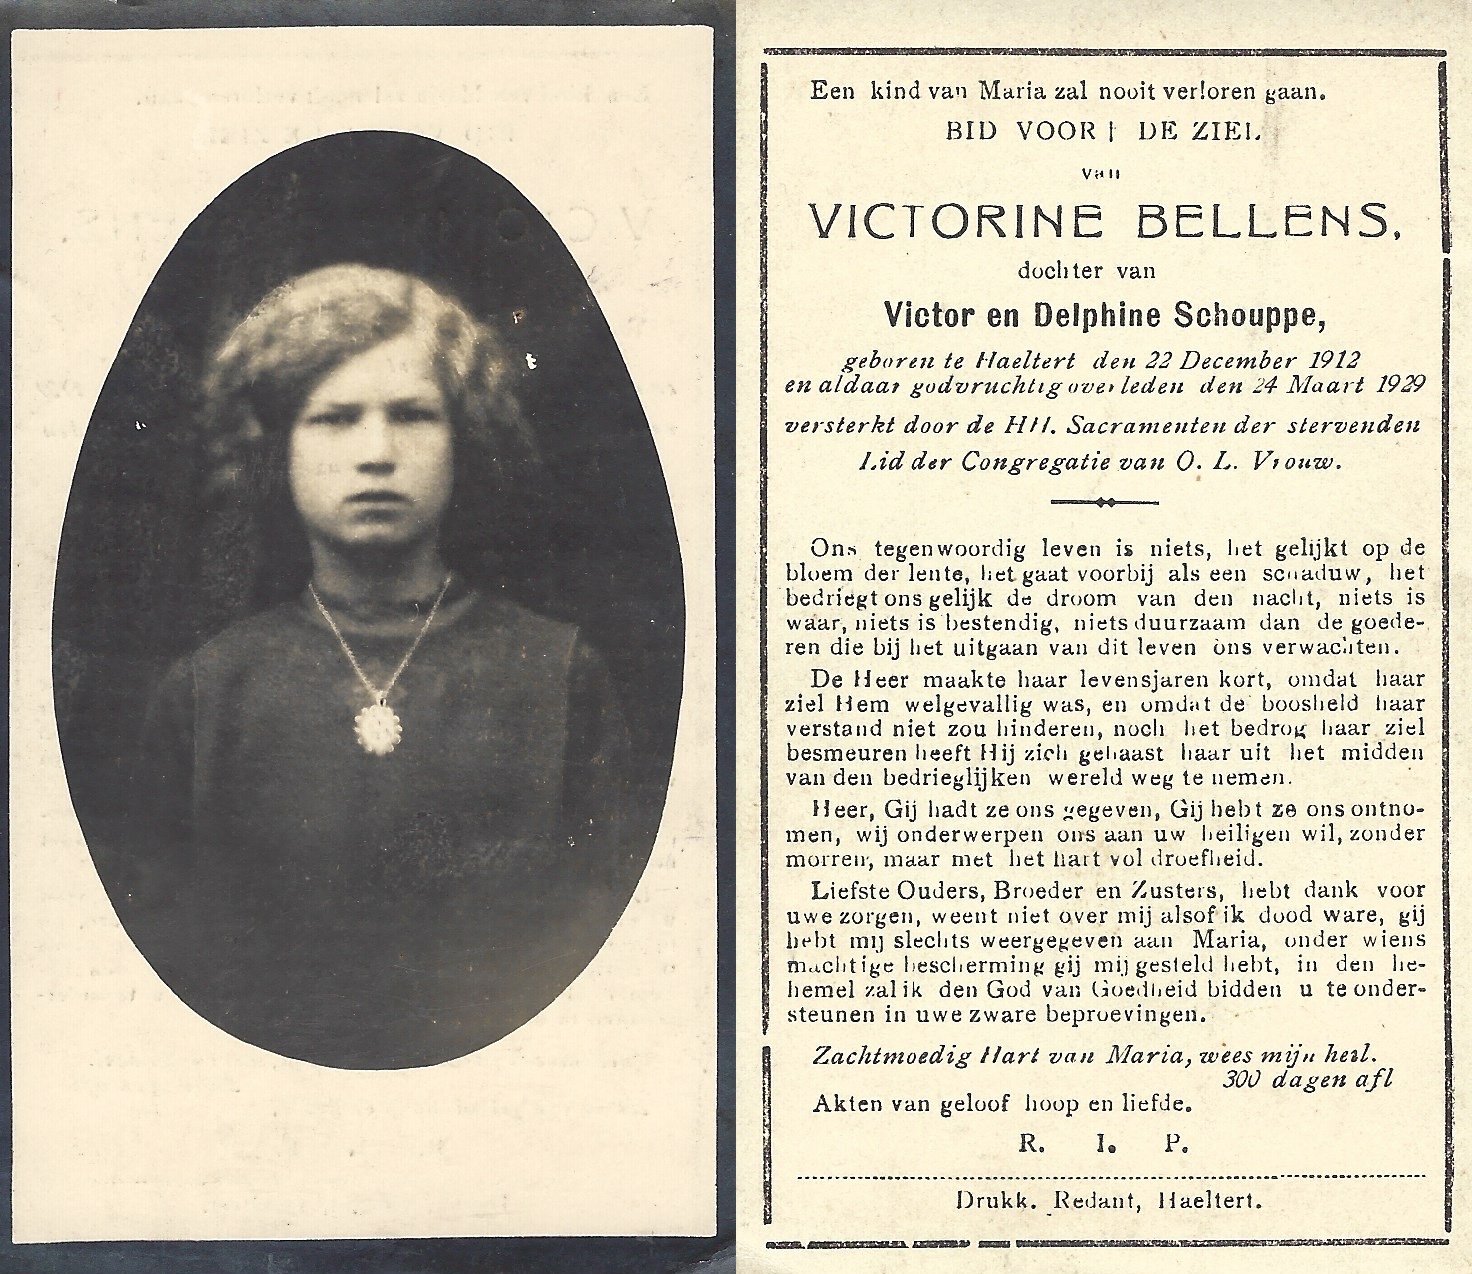 Een kind van Maria zal nooit verloren gaan.
BID VOOR † DE ZIEL
van
VICTORINE BELLENS,
dochter van
Victor en Delphine Schouppe,
geboren te Haeltert den 22 December 1912
en aldaar godvruchtig overleden den 24 Maart 1929
versterkt door de HH. Sacramenten der stervenden
Lid der Congregatie van O. L. Vrouw.
Ons tegenwoordig leven is niets, het gelijkt op de
bloem der lente, het gaat voorbij als een schaduw, het
bedriegt ons gelijk de droom van den nacht, niets is
waar, niets is bestendig, niets duurzaam dan de goede-
ren die bij het uitgaan van dit leven ons verwachten.
De Heer maakte haar levensjaren kort, omdat haar
ziel Hem welgevallig was, en omdat de boosheid haar
verstand niet zou hinderen, noch het bedrog haar ziel
besmeuren heeft Hij zich gehaast haar uit het midden
van den bedrieglijken wereld weg te nemen.
Heer, Gij hadt ze ons gegeven, Gij hebt ze ons ontno-
men, wij onderwerpen ons aan uw heiligen wil, zonder
morren, maar met het hart vol droefheid.
Liefste Ouders, Broeder en Zusters, hebt dank voor
uwe zorgen, weent niet over mij alsof ik dood ware, gij
hebt mij slechts weergegeven aan Maria, onder wiens
machtige bescherming gij mij gesteld hebt, in den he-
hemel zal ik den God van Goedheid bidden u te onder-
steunen in uwe zware beproevingen.
Zachtmoedig Hart van Maria, wees mijn heil.
300 dagen afl
Akten van geloof hoop en liefde.
R. I. P.
Drukk. Redant, Haeltert.